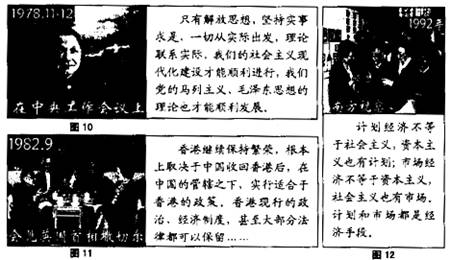 1978.11-12
在中央工作会议上
只有解放思想，坚持实事
求是，一切从实际出发，理论
联系实际，我们的社会主义现
代化建设才能顺利进行，我们
党的马列主义、毛泽东思想的
理论也才能顺利发展。
图10
1982.9
会见英国首相撒切尔
香港继续保持繁荣，根本
上取决于中国收回香港后，在
中国的管辖之下，实行适合于
香港的政策。香港现行的政
治、经济制度，甚至大部分法
律都可以保留……
图11
1992年
南方视察
计划经济不等
于社会主义，资本主
义也有计划；市场经
济不等于资本主义，
社会主义也有市场。
计划和市场都是经
济手段。
图12